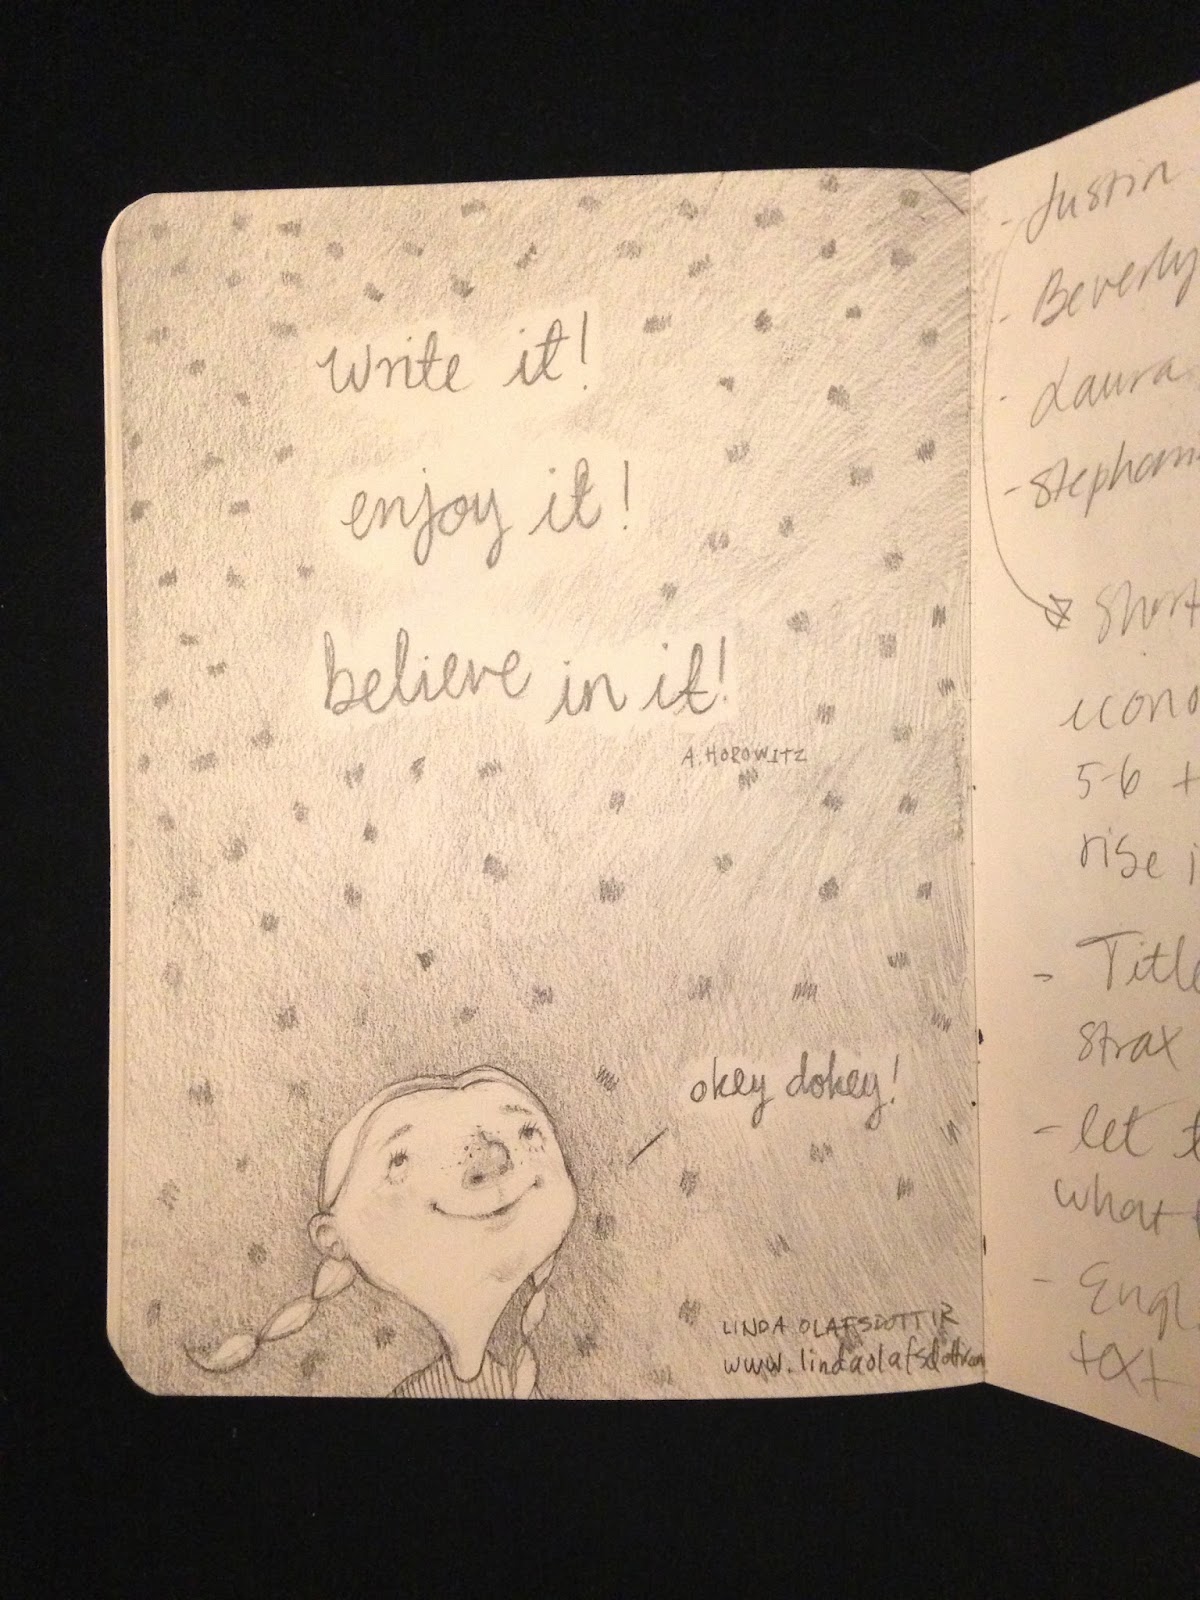 Write it!
enjoy it!
believe in it!
A. HOROWITZ
okey dokey!
LINDA OLAFSDOTTIR
www.lindaolafsdottir.com
- Justin
- Beverly
- Laura
- Stephan
Short
5-6 +
rise i
- Title
strax
- let t
what
- Engl
text